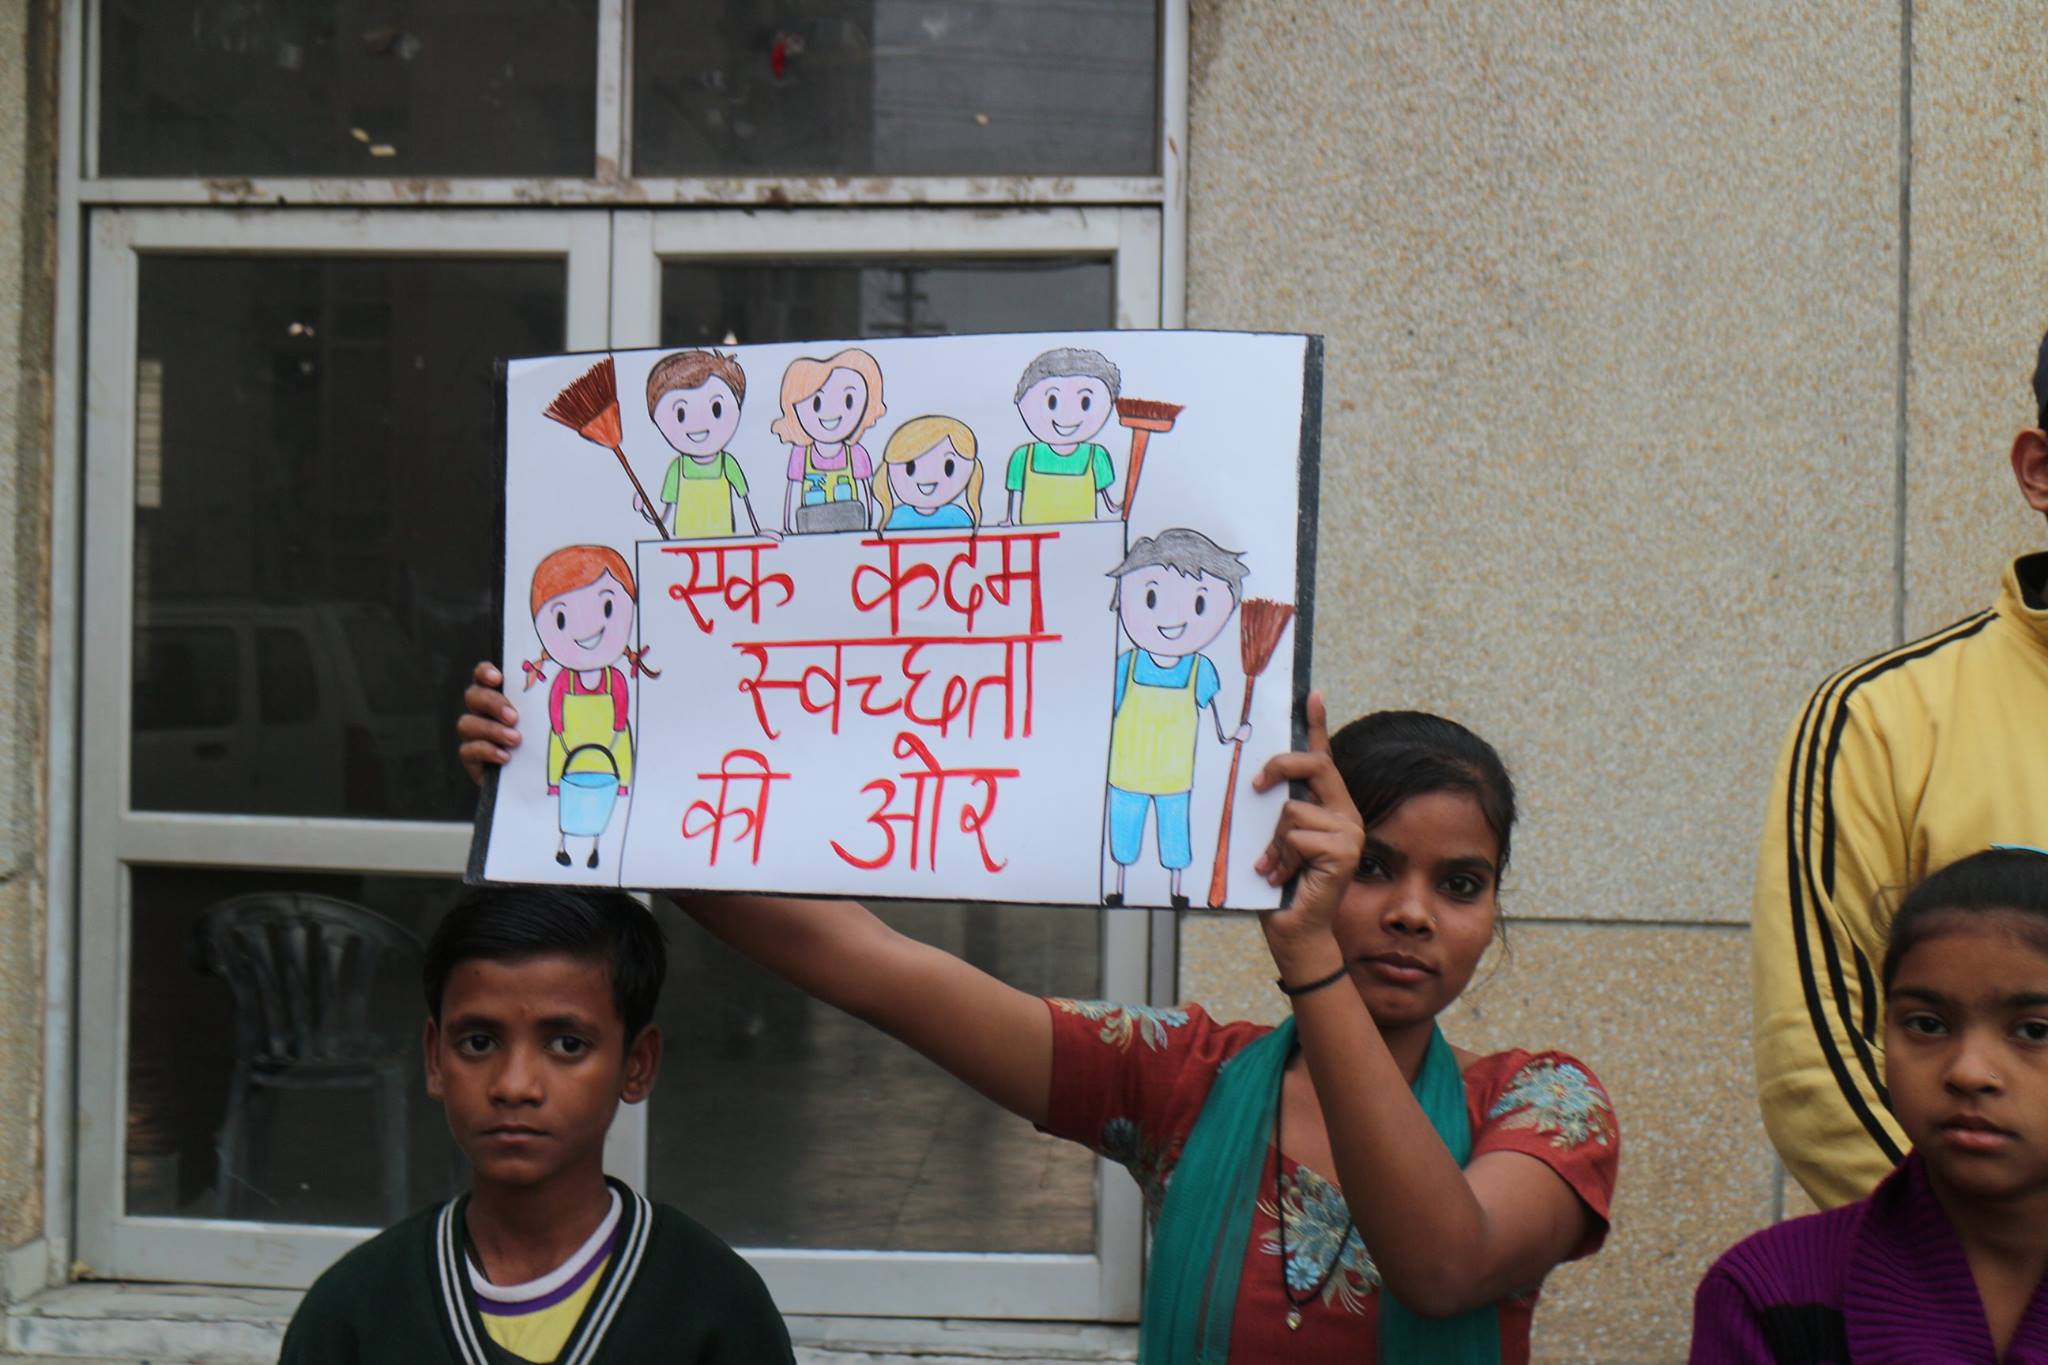 एक कदम
स्वच्छता
की ओर